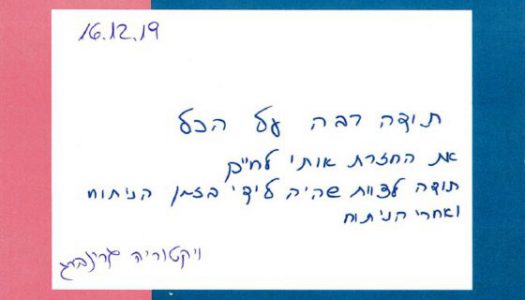 16.12.19
תודה רבה על הכל
את החזרת אותי לחיים
תודה לצוות שהיה לידי בזמן הניתוח
ואחרי הניתוח
ויקטוריה גרינברג